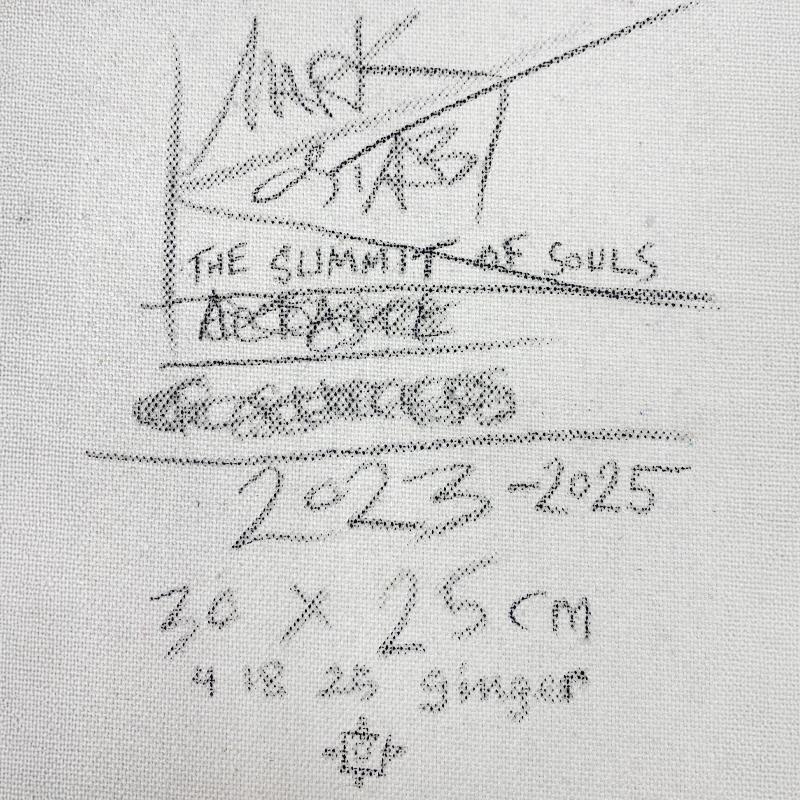 MARK
STAB
THE SUMMIT OF SOULS
2023-2025
30 X 25 CM
4 18 25 ginger